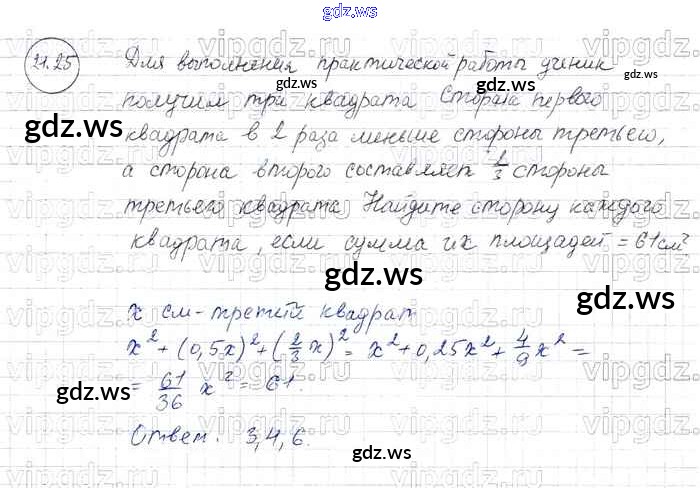 gdz.ws
21.25
Для выполнения практической работы ученик
получил три квадрата Сторона первого
квадрата в 2 раза меньше стороны третьего,
а сторона второго составляет 2/3 стороны
третьего квадрата Найдите сторону каждого
квадрата, если сумма их площадей = 61 см²
x см - третий квадрат
x² + (0,5x)² + (2/3 x)² = x² + 0,25x² + 4/9 x² =
= 61/36 x² = 61.
Ответ. 3,4,6.